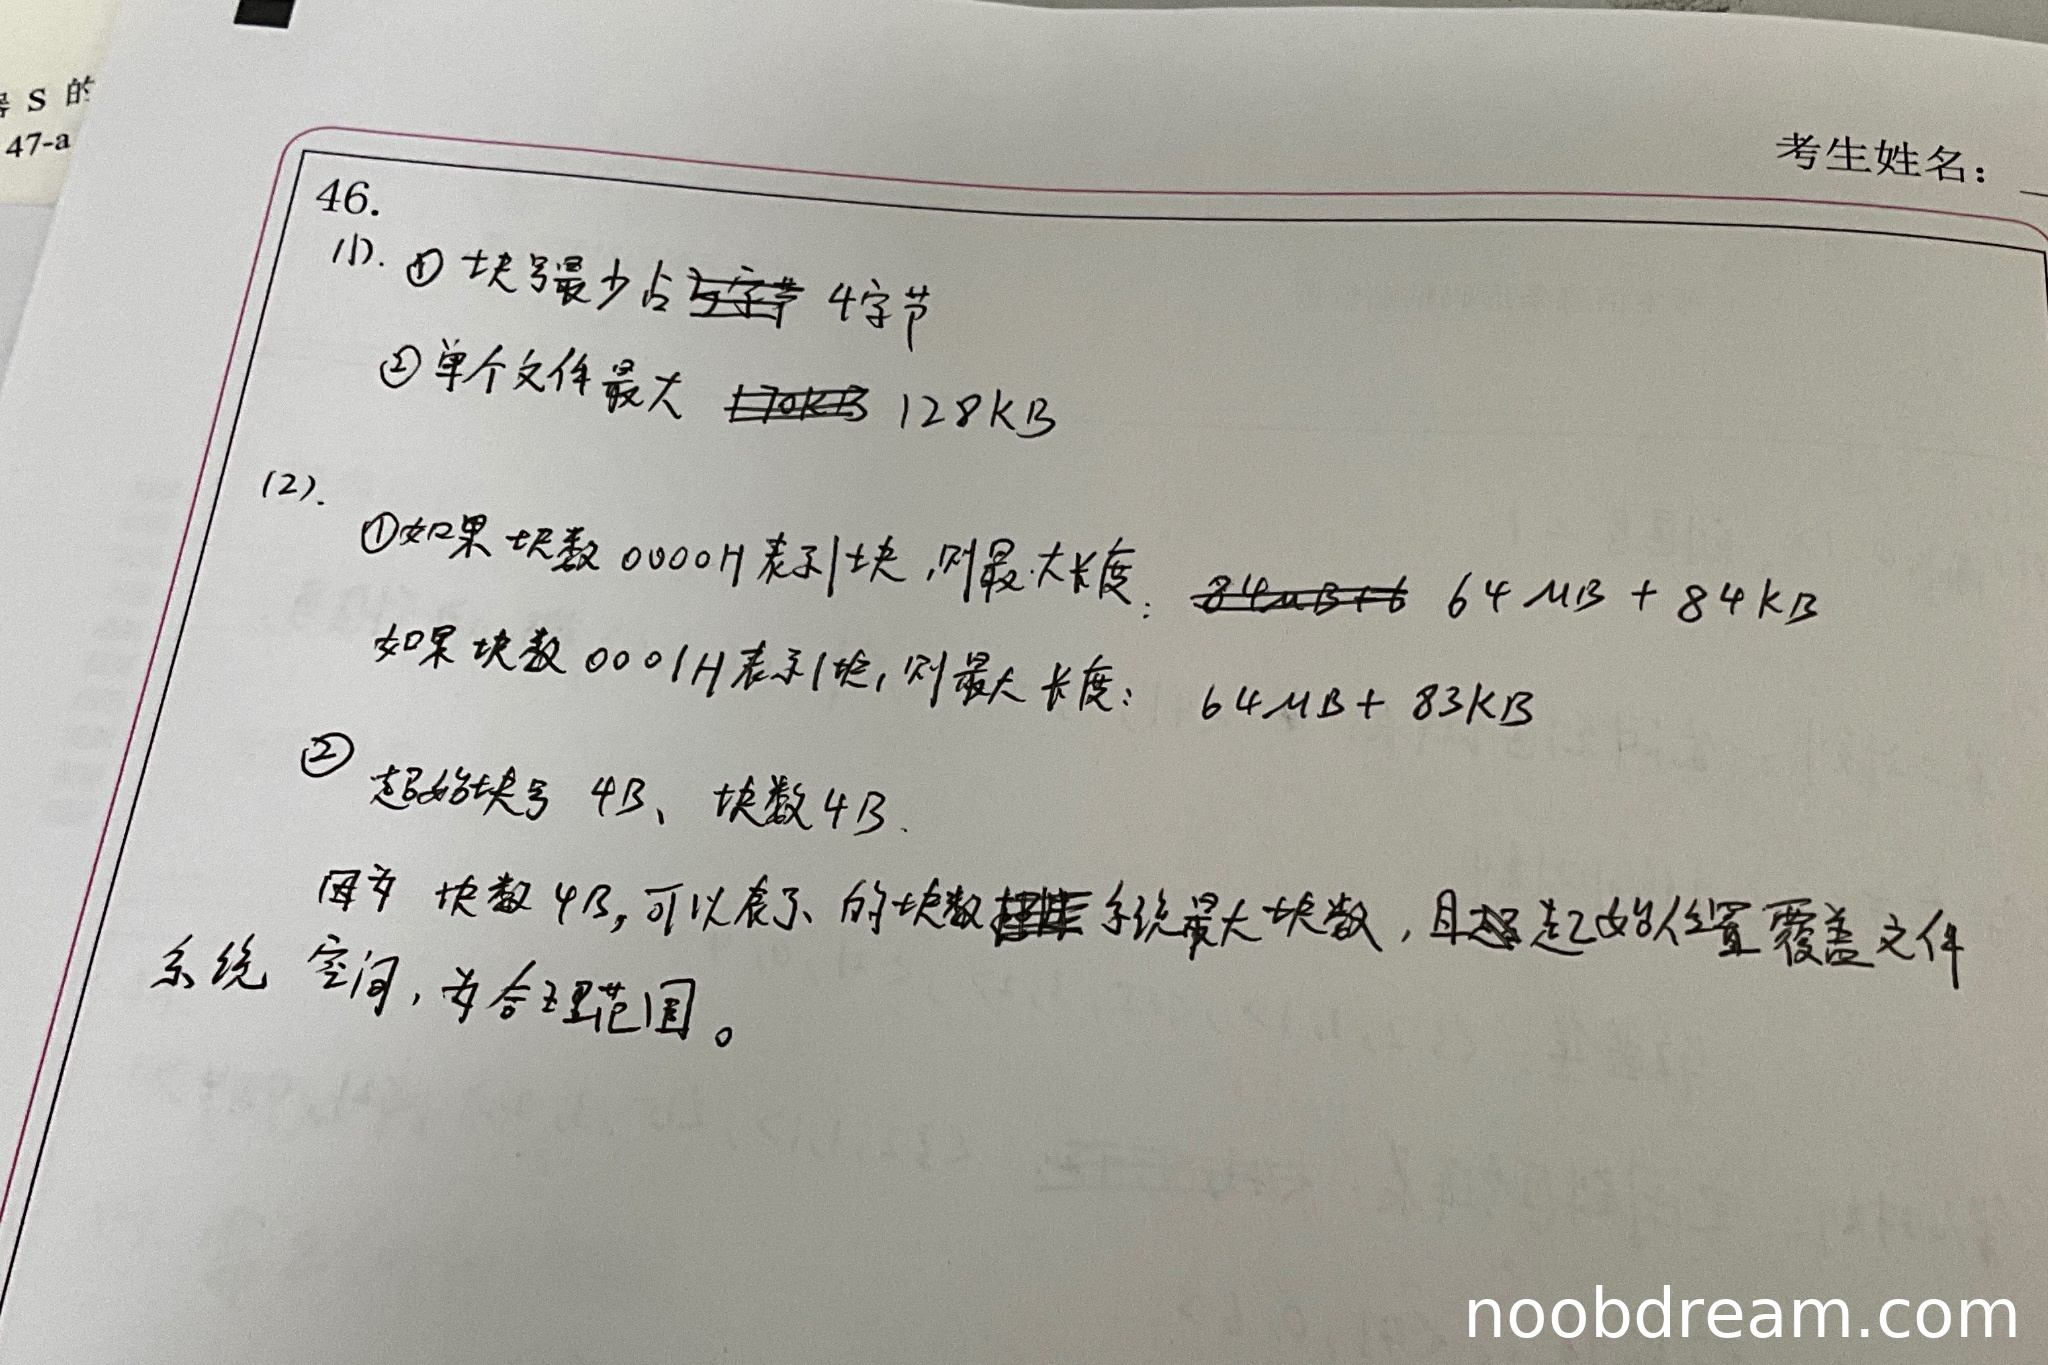 器 S 的
47-a
考生姓名：
46.
(1). ① 块号最少占 4字节
② 单个文件最大 128KB
(2).
①如果 块数 0000H 表示1块,则最大长度: 64MB + 84KB
如果 块数 0001H 表示1块,则最大长度: 64MB + 83KB
②
起始块号 4B、块数4B.
因为 块数 4B,可以表示 的块数 系统最大块数, 且 起始位置覆盖文件
系统 空间,为合理范围。
noobdream.com